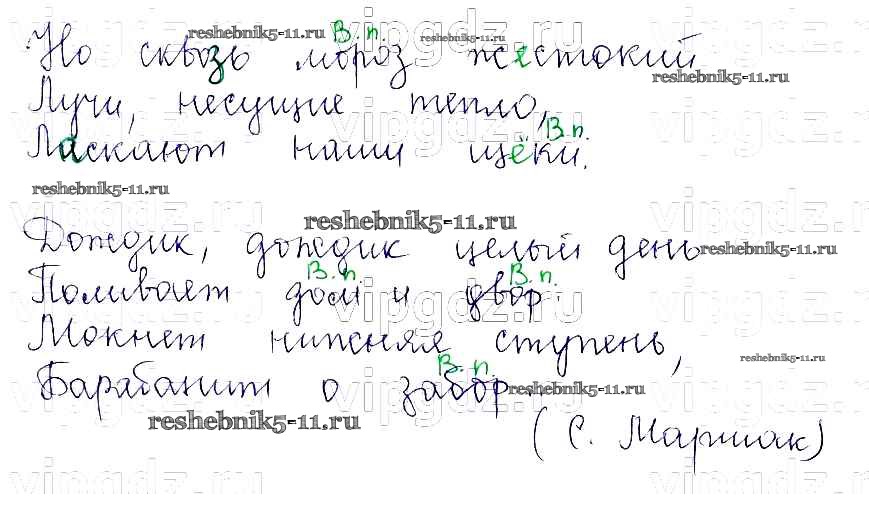 Но сквозь мороз жестокий
В.п.
Лучи, несущие тепло,
Ласкают наши щёки.
В.п.
Дождик, дождик целый день
Поливает дом и двор.
В.п. В.п.
Мокнет нижняя ступень,
Барабанит о забор.
В.п.
(С. Маршак)
reshebnik5-11.ru
reshebnik5-11.ru
reshebnik5-11.ru
reshebnik5-11.ru
reshebnik5-11.ru
reshebnik5-11.ru
reshebnik5-11.ru
reshebnik5-11.ru
reshebnik5-11.ru
vipgdz.ru